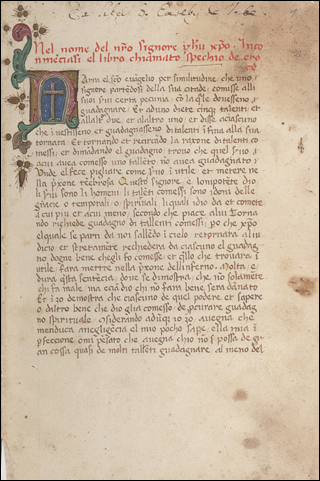 Nel nome del nr̃o signore yħu xp̃o. Inco
minciasi el libro chiamato spechio de cro
ce
Narra el scõ euãgelio per similitudine che uno
signore partẽdosi della sua citade comisse alli
suoi serui certa pecunia cõ la q̃le douesseno
guadagnare. Et ad uno diete cinq; talenti et
allaltro due et alaltro uno et disse a ciascuno
che inuestisseno et guadagnasseno di talenti ĩfina alla sua
tornata. Et tornando et recercãdo la raxone di talenti co
messi et domãdando el guadagno trouo che quel seruo
a cui auea comesso uno talẽto nõ auea guadagnato
Unde el fece pigliare come seruo inutile et metere ne
la presone tenebrosa. Questo signore e lomnipotẽte dio
li serui sono li homeni li talẽti comessi sono i doni delle
gracie o temporali o spirituali li quali idio da et comete
a cui piu et a cui meno secondo che piace a lui
richiede guadagno di talenti comessi po che xp̃o
elquale se parti da noi salẽdo i cielo retornara a lui
dicio et stretamẽte rechiedera da ciascuno el guadag
no dogne bene chegli fo comesse et q̃llo che trouara i
utile fara mettre nella presone dellinferno. Molto e
dura q̃sta sentẽcia doue se dimostra che nõ solamẽte
chi fa male ma eciã dio chi nõ fara bene sera dãnato
Et ĩ zo demostra che ciascuno de quel podere et sapere
o daltro bene che dio gli a comesso de procurare guadag
no spirituale. Cõsiderando adũq; io zo auegna che
menduca negligẽcia el mio pocho sape et la mia ĩ
perfeccione õmi pesato che auegna chio nõ possa de gr
an cossa quasi de molti talẽti guadagnare al meno del